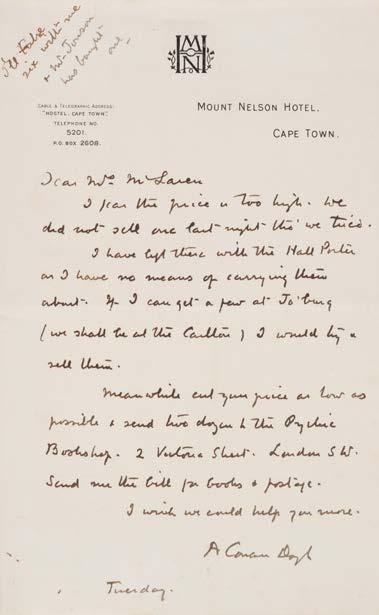 I'll take
six with me
& Mr Jonson
has bought
one
MHN
CABLE & TELEGRAPHIC ADDRESS:
"HOSTEL, CAPE TOWN".
TELEPHONE NO.
5201.
P.O. BOX 2608.
MOUNT NELSON HOTEL.
CAPE TOWN.
Dear Mrs McLaren
I fear the price is too high. We
did not sell one last night tho' we tried.
I have left these with the Hall Porter
as I have no means of carrying them
about. If I can get a few at Jo'burg
(we shall be at the Carlton) I would try &
sell them.
Meanwhile cut your price as low as
possible & send two dozen to the Psychic
Bookshop. 2 Victoria Street. London S.W.
Send me the bill for books & postage.
I wish we could help you more.
A Conan Doyle
Tuesday.